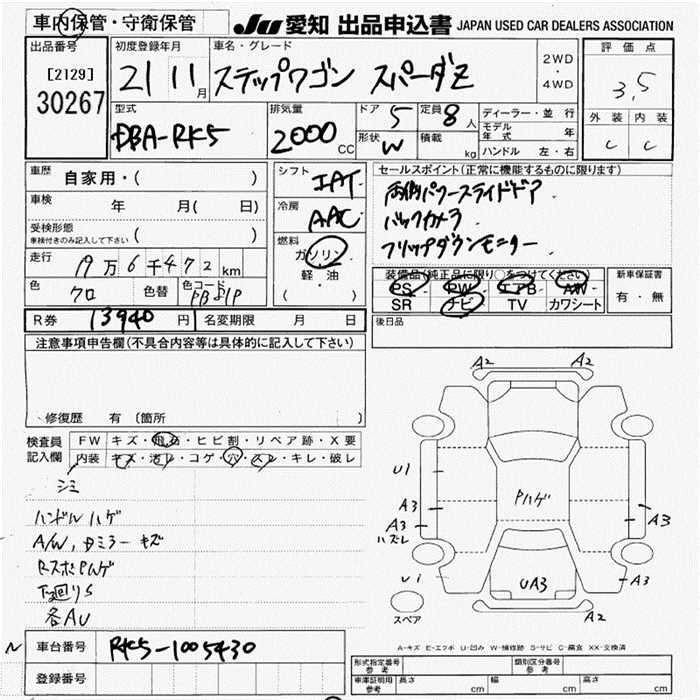 車内保管・守衛保管
JU 愛知 出品申込書 JAPAN USED CAR DEALERS ASSOCIATION
出品番号
[2129]
30267
初度登録年月
21 11月
車名・グレード
ステップワゴン スパーダZ
2WD・4WD
評価点
3.5
外装 内装
C C
型式
DBA-RK5
排気量
2000 CC
ドア 5
形状 W
定員 8人
積載 kg
ディーラー・並行
モデル年式 年
ハンドル 左・右
車歴 自家用・( )
車検 年 月( 日)
受検形態 ( )
車検付きのみ記入して下さい
走行 19万6千472km
色 クロ 色替 色コード PB81P
R券 13940円 名変期限 月 日
シフト IAT
冷房 AAC
燃料
ガソリン
軽・油
( )
セールスポイント(正常に機能するものに限ります)
両側パワースライドドア
バックカメラ
フリップダウンモニター
装備品(純正品に限り○をつけてください)
PS PW エアB AW
SR ナビ TV カワシート
新車保証書
有・無
後日品
注意事項申告欄(不具合内容等は具体的に記入して下さい)
修復歴 有 (箇所 )
検査員記入欄
FW キズ・飛石・ヒビ割・リペア跡・X要
内装 キズ・汚レ・コゲ・穴・スレ・キレ・破レ
シミ
ハンドルハゲ
A/W, ミラーキズ
RスポPハゲ
下廻りS
各AU
A2 A2
U1
A3
A3
ハズレ
Ui
Pハゲ
A3
UA3
A3
A2
スペア
A-キズ E-エクボ U-凹み W-補修跡 S-サビ C-腐食 XX-交換済
車台番号 RK5-1005430
登録番号
形式指定番号 参考
類別区分番号 参考
車庫証明用 参考 長さ cm 幅 cm 高さ cm
N